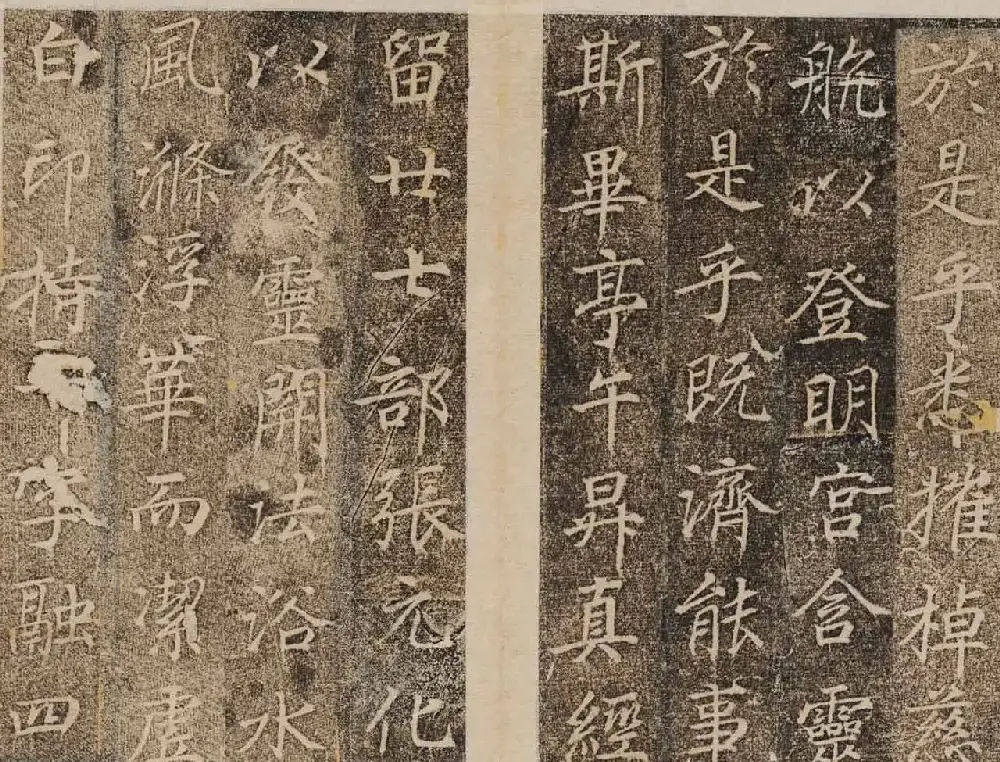 於是乎悉摧棹慈
航以登明宫含靈
於是乎既濟能事
斯畢亭午昇真經
留廿七部張元化
以發靈開法浴水
風滌浮華而潔虛
白印持字融四